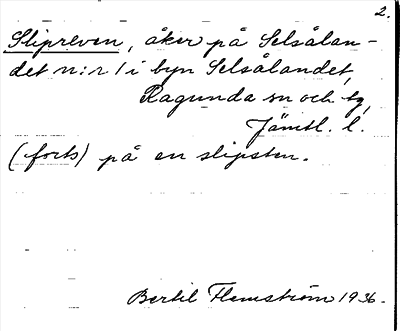 2.
Slipreven, åker på Selsålan-
det n:r 1 i byn Selsålandet,
Ragunda sn och tg,
Jämtl. l.
(forts) på en slipsten.
Bertil Flemström 1936.